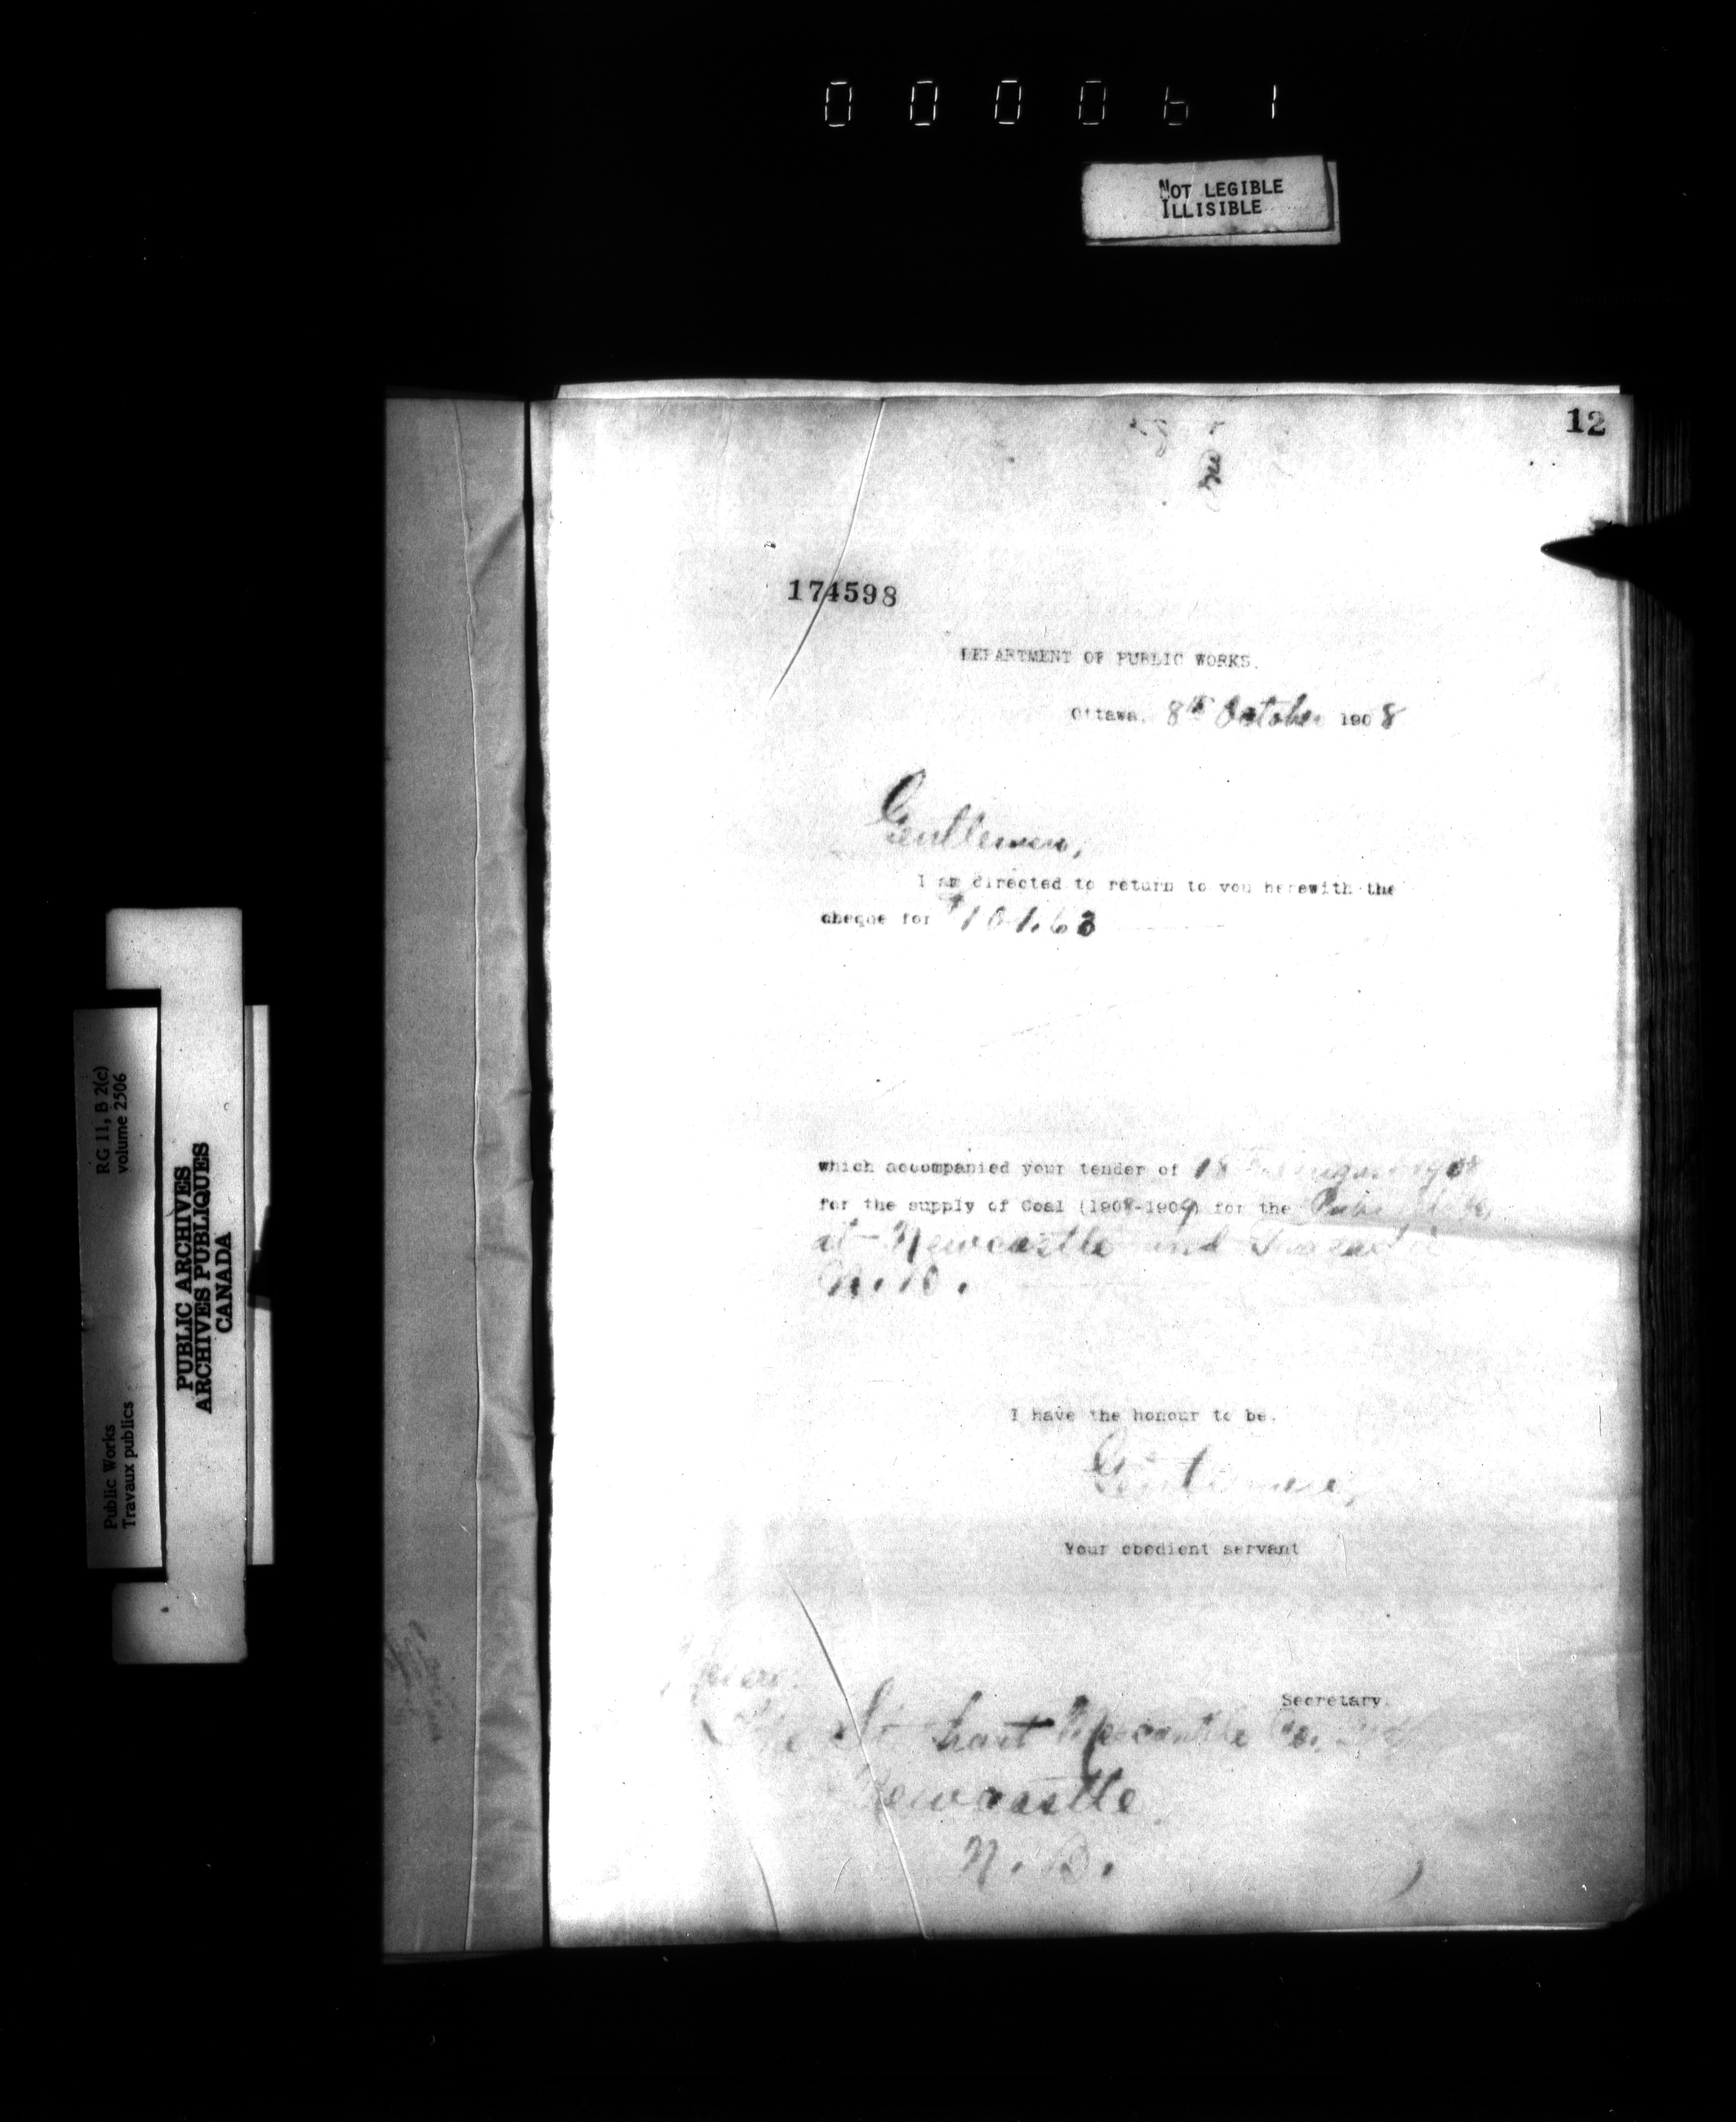 000061
NOT LEGIBLE
ILLISIBLE
12
174598
DEPARTMENT OF PUBLIC WORKS.
Ottawa, 8th October 1908
Gentlemen,
I am directed to return to you herewith the
cheque for $101.63
which accompanied your tender of 18 August 1908
for the supply of Coal (1908-1909) for the
at Newcastle and
N.B.
I have the honour to be.
Gentlemen,
Your obedient servant
Secretary.
The hart Mercantile Co.
Newcastle
N.B.
RG 11, B 2(c)
volume 2506
Public Works
Travaux publics
PUBLIC ARCHIVES
ARCHIVES PUBLIQUES
CANADA